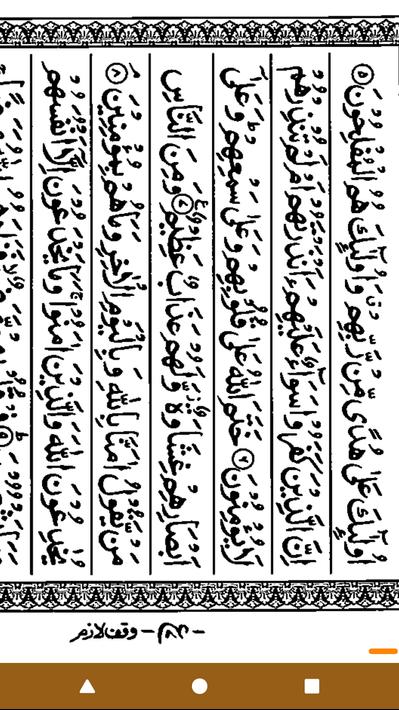 اُولٰٓئِكَ عَلٰى هُدًى مِّنْ رَّبِّهِمْ وَاُولٰٓئِكَ هُمُ الْمُفْلِحُوْنَ ۵
اِنَّ الَّذِيْنَ كَفَرُوْا سَوَآءٌ عَلَيْهِمْ ءَاَنْذَرْتَهُمْ اَمْ لَمْ تُنْذِرْهُمْ
لَا يُؤْمِنُوْنَ ۶ خَتَمَ اللّٰهُ عَلٰى قُلُوْبِهِمْ وَعَلٰى سَمْعِهِمْ ؕ وَعَلٰٓى
اَبْصَارِهِمْ غِشَاوَةٌ ز وَّلَهُمْ عَذَابٌ عَظِيْمٌ ۷ وَمِنَ النَّاسِ
مَنْ يَّقُوْلُ اٰمَنَّا بِاللّٰهِ وَبِالْيَوْمِ الْاٰخِرِ وَمَا هُمْ بِمُؤْمِنِيْنَ ۸
يُخٰدِعُوْنَ اللّٰهَ وَالَّذِيْنَ اٰمَنُوْا ۚ وَمَا يَخْدَعُوْنَ اِلَّاۤ اَنْفُسَهُمْ
وقف لازم